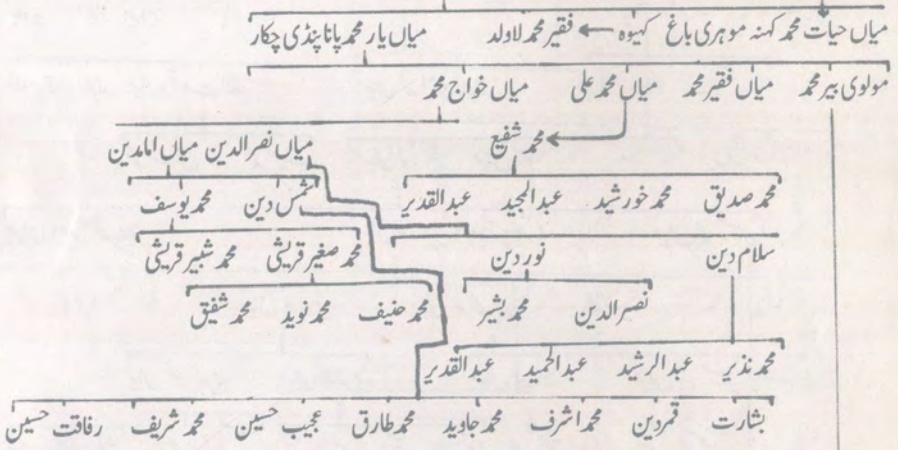 میاں حیات محمد کہنہ موہری باغ کہیوہ ← فقیر محمد لاولد میاں یار محمد پانا پنڈی چکار
مولوی بیر محمد میاں فقیر محمد میاں محمد علی میاں خواج محمد
محمد شفیع میاں نصر الدین میاں امامدین
محمد صدیق محمد خورشید عبدالمجید عبدالقدیر شمس دین محمد یوسف
سلام دین نور دین محمد صغیر قریشی محمد شبیر قریشی
نصر الدین محمد بشیر محمد حنیف محمد نوید محمد شفیق
محمد نذیر عبدالرشید عبدالحمید عبدالقدیر
بشارت قمر دین محمد اشرف محمد جاوید محمد طارق عجیب حسین محمد شریف رفاقت حسین